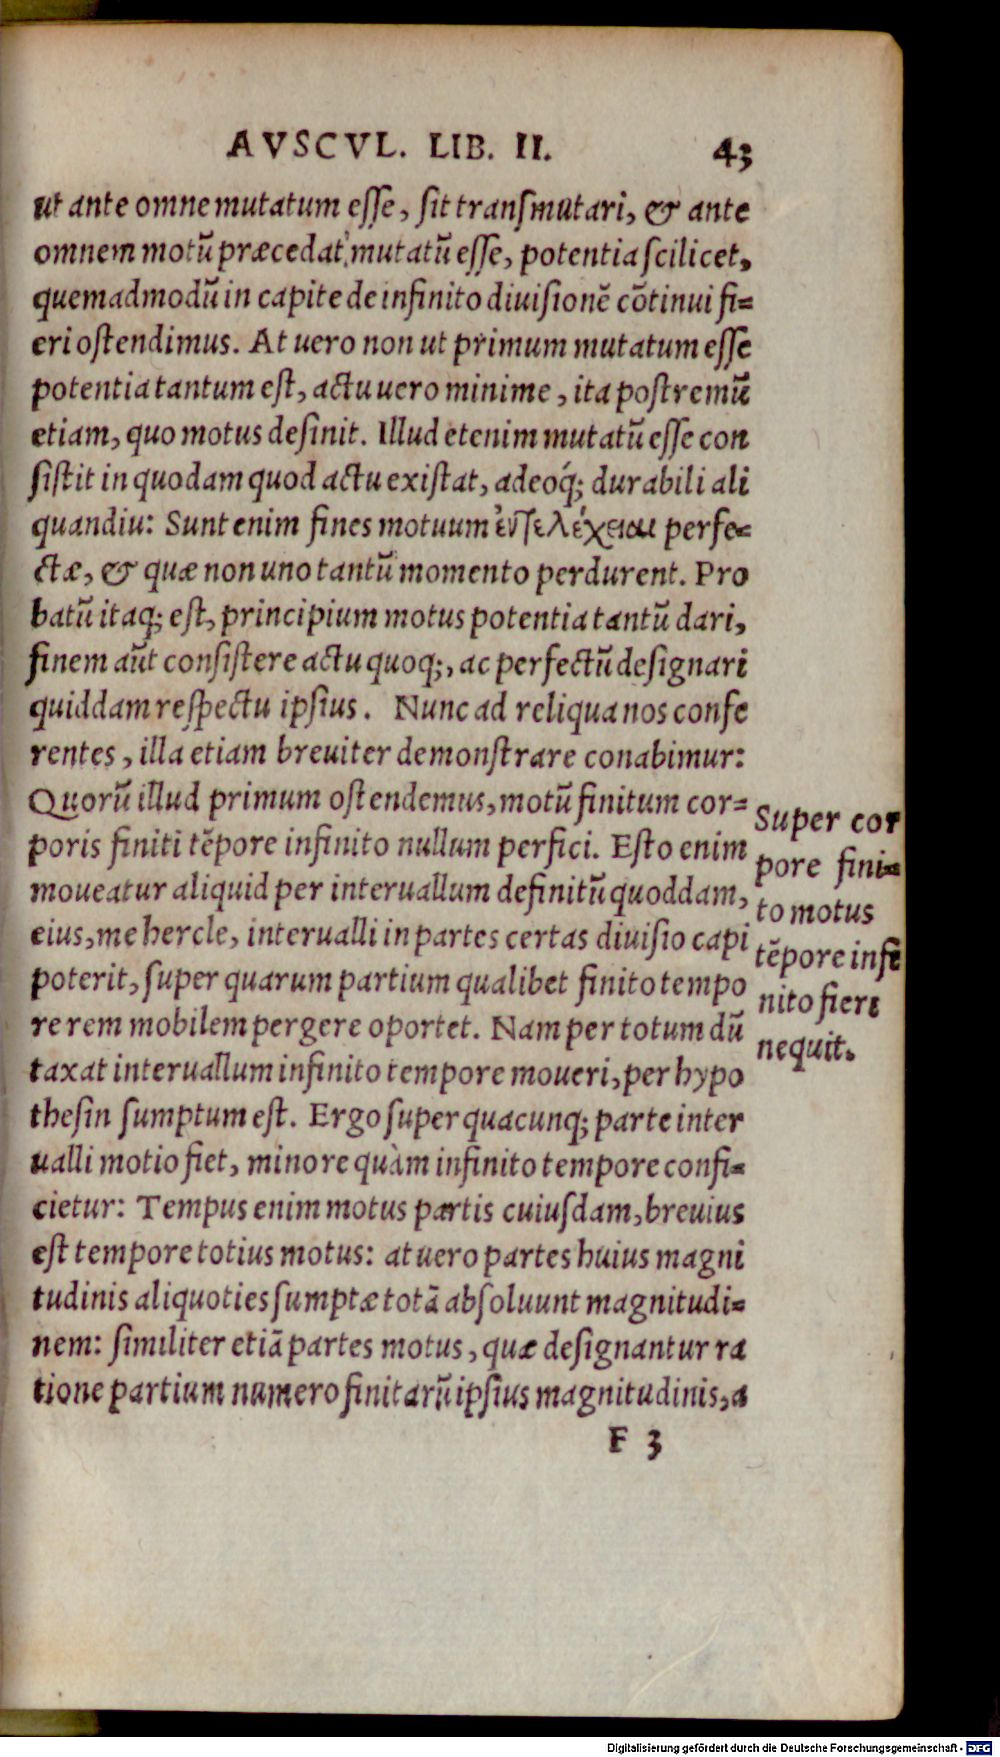 AVSCVL. LIB. II. 43
ut ante omne mutatum eſſe, ſit tranſmutari, & ante
omnem motũ præcedat mutatũ eſſe, potentia ſcilicet,
quemadmodũ in capite de infinito diuiſionẽ cõtinui fi=
eri oſtendimus. At uero non ut primum mutatum eſſe
potentia tantum eſt, actu uero minime, ita poſtremũ
etiam, quo motus deſinit. Illud etenim mutatũ eſſe con
ſiſtit in quodam quod actu exiſtat, adeoq́; durabili ali
quandiu: Sunt enim fines motuum ἐντελέχειαι perfe=
ctæ, & quæ non uno tantũ momento perdurent. Pro
batũ itaq; eſt, principium motus potentia tantũ dari,
finem aũt conſiſtere actu quoq;, ac perfectũ deſignari
quiddam reſpectu ipſius. Nunc ad reliqua nos confe
rentes, illa etiam breuiter demonſtrare conabimur:
Quorũ illud primum oſtendemus, motũ finitum cor=
poris finiti tẽpore infinito nullum perfici. Eſto enim
moueatur aliquid per interuallum definitũ quoddam,
eius, me hercle, interualli in partes certas diuiſio capi
poterit, ſuper quarum partium qualibet finito tempo
re rem mobilem pergere oportet. Nam per totum dũ
taxat interuallum infinito tempore moueri, per hypo
theſin ſumptum eſt. Ergo ſuper quacunq; parte inter
ualli motio fiet, minore quàm infinito tempore confi=
cietur: Tempus enim motus partis cuiuſdam, breuius
eſt tempore totius motus: at uero partes huius magni
tudinis aliquoties ſumptæ totã abſoluunt magnitudi=
nem: ſimiliter etiã partes motus, quæ deſignantur ra
tione partium numero finitarũ ipſius magnitudinis, a
F 3
Super cor
pore fini=
to motus
tẽpore infi
nito fieri
nequit.
Digitalisierung gefördert durch die Deutsche Forschungsgemeinschaft - DFG